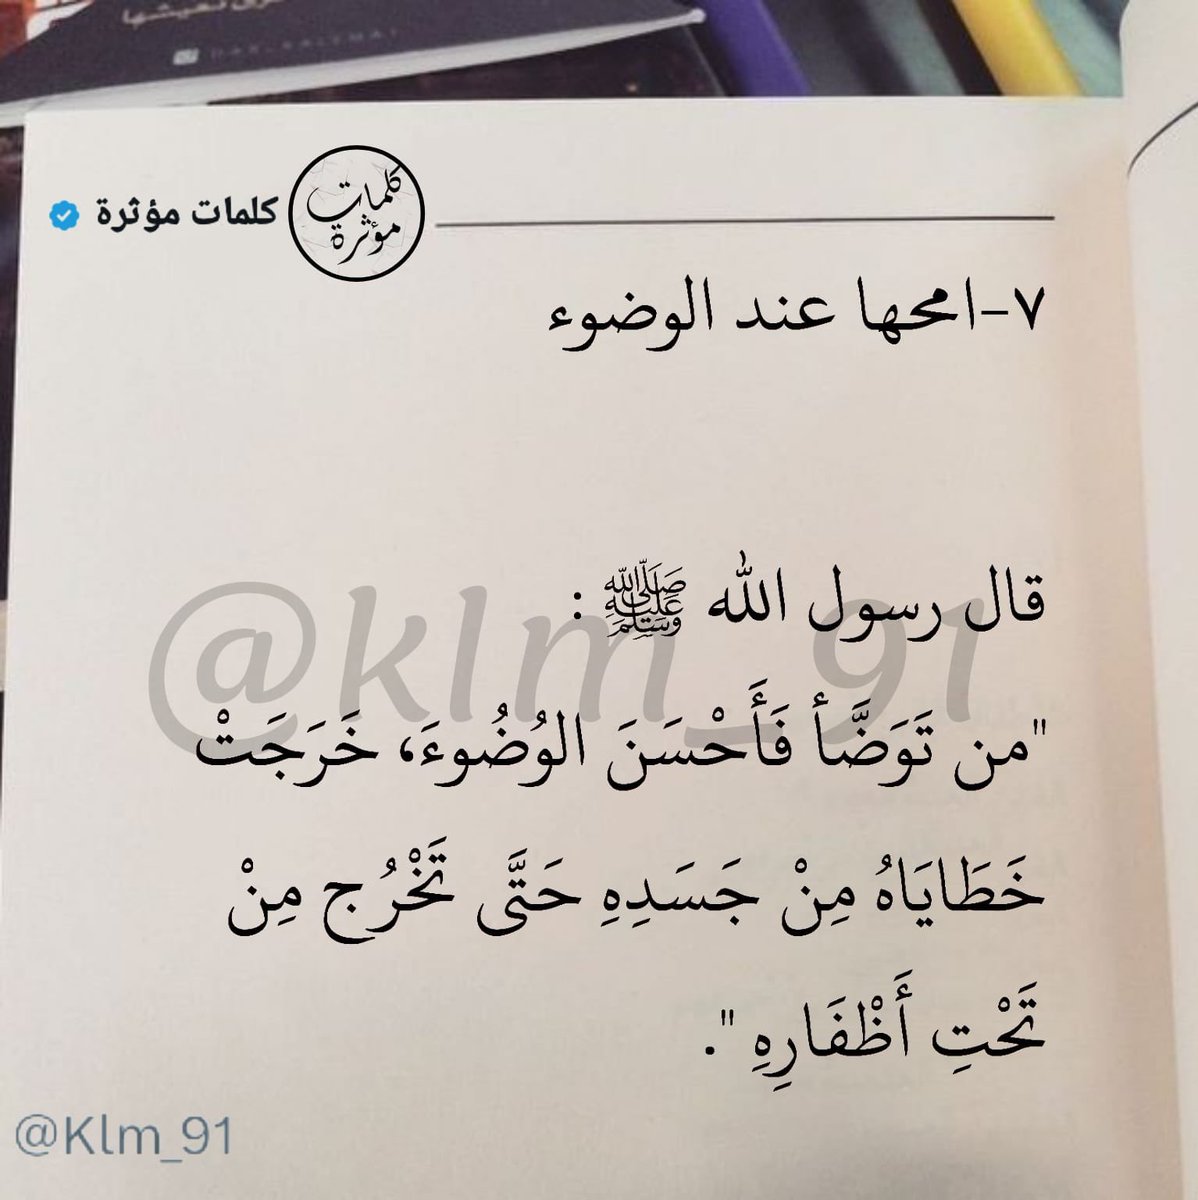 كلمات مؤثرة
كلمات مؤثرة
٧-امحها عند الوضوء
قال رسول الله ﷺ :
"من تَوَضَّأ فَأَحْسَنَ الوُضُوءَ، خَرَجَتْ
خَطَايَاهُ مِنْ جَسَدِهِ حَتَّى تَخْرُج مِنْ
تَحْتِ أَظْفَارِهِ ".
@klm_91
@Klm_91